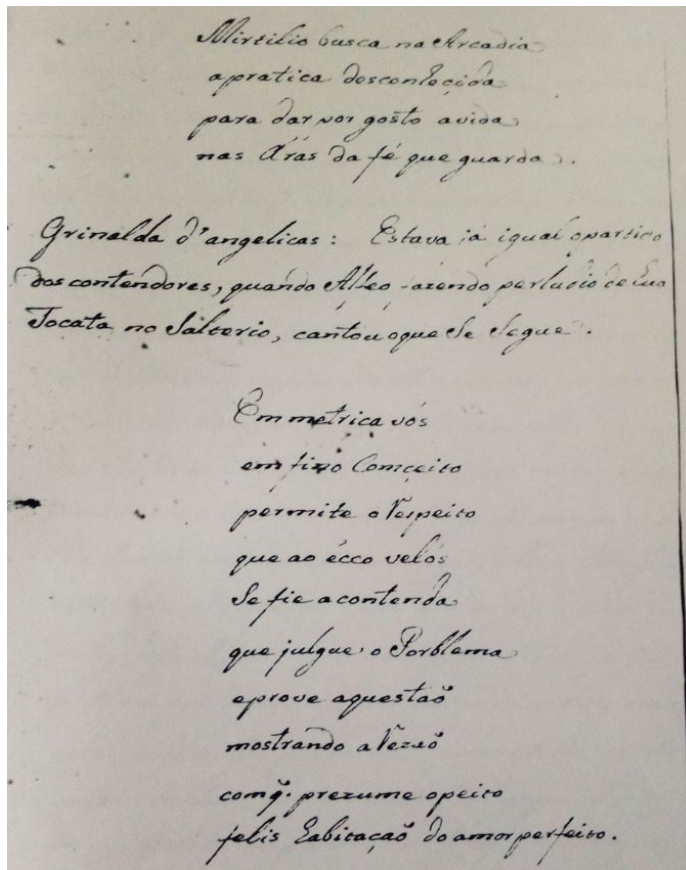 Mirtilio busca na Arcadia
a pratica desconhecida
para dar por gosto a vida
nas Áras da fé que guarda.
Grinalda d'angelicas: Estava já igual o partido
dos contendores, quando Alfeo fazendo perludio de sua
Tocata no Salterio, cantou o que se segue.
Em metrica vós
em fino Comceito
permite o Respeito
que ao écco velós
Se fie a contenda
que julgue o Porblema
e prove a questaõ
mostrando a Rezaõ
com q. prezume o peito
felis habitaçaõ do amor perfeito.